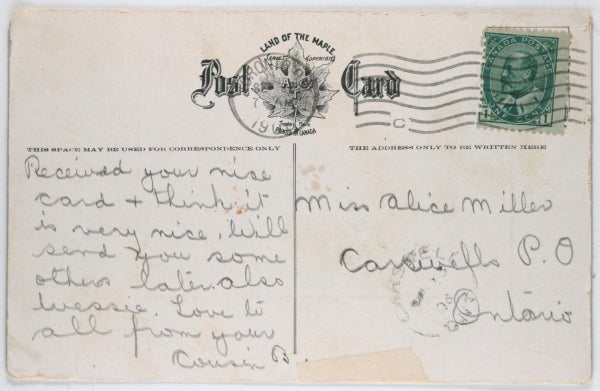 LAND OF THE MAPLE
Post Card
TORONTO
THIS SPACE MAY BE USED FOR CORRESPONDENCE ONLY
THE ADDRESS ONLY TO BE WRITTEN HERE
CANADA POSTAGE
1
C
Received your nice
card + think it
is very nice, Will
send you some
others later. also
Wessie. Love to
all from your
Cousin B.
Miss Alice Miller
Carswells P. O
Ontario